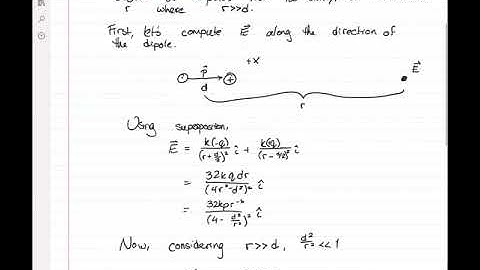 r where r>>d.
First, let's compute E⃗ along the direction of
the dipole.
+x
p⃗
E⃗
- +
d
r
Using superposition,
E⃗ = k(-q)/(r+d/2)² î + k(q)/(r-d/2)² î
= 32kqdr/(4r²-d²)² î
= 32kpr⁻³/(4-d²/r²)² î
Now, considering r>>d, d²/r² <<1